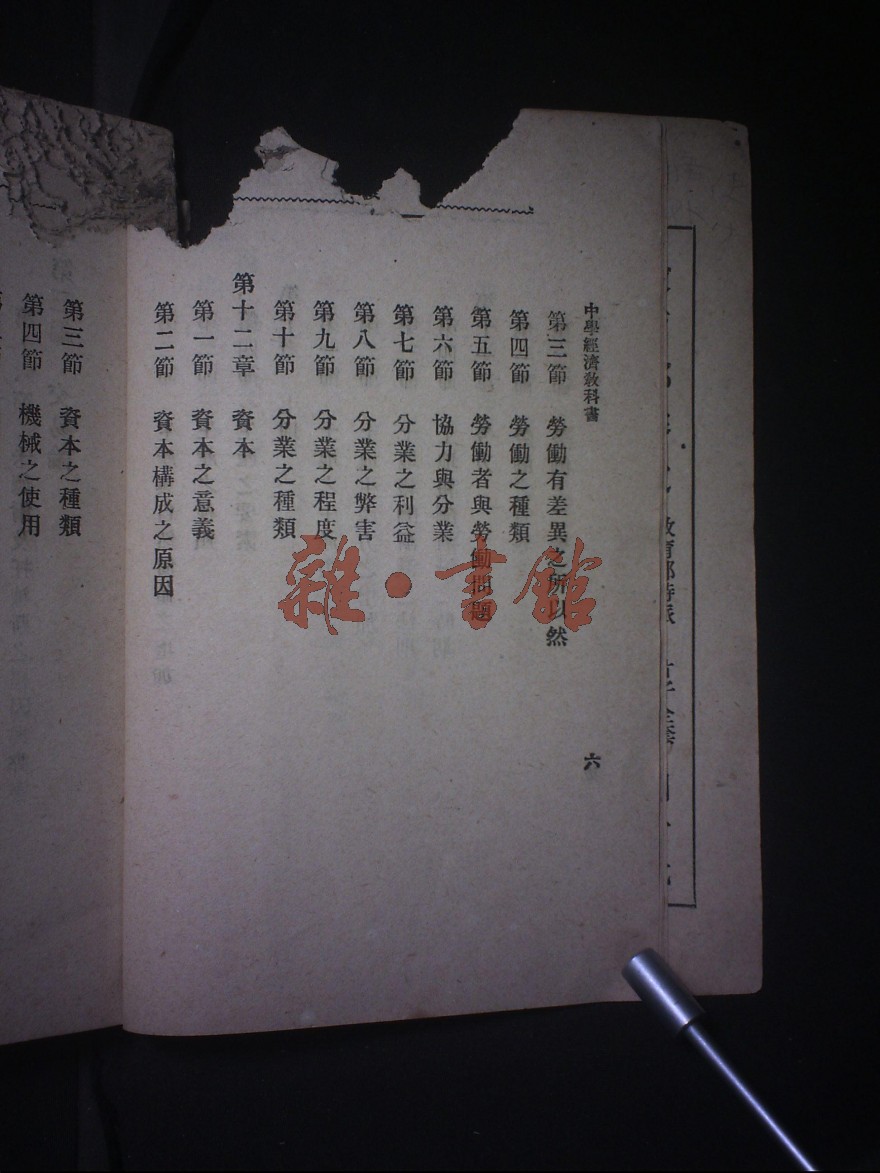 中學經濟敎科書
六
第三節　勞働有差異之所以然
第四節　勞働之種類
第五節　勞働者與勞働問題
第六節　協力與分業
第七節　分業之利益
第八節　分業之弊害
第九節　分業之程度
第十節　分業之種類
第十二章　資本
第一節　資本之意義
第二節　資本構成之原因
第三節　資本之種類
第四節　機械之使用
雜·書館